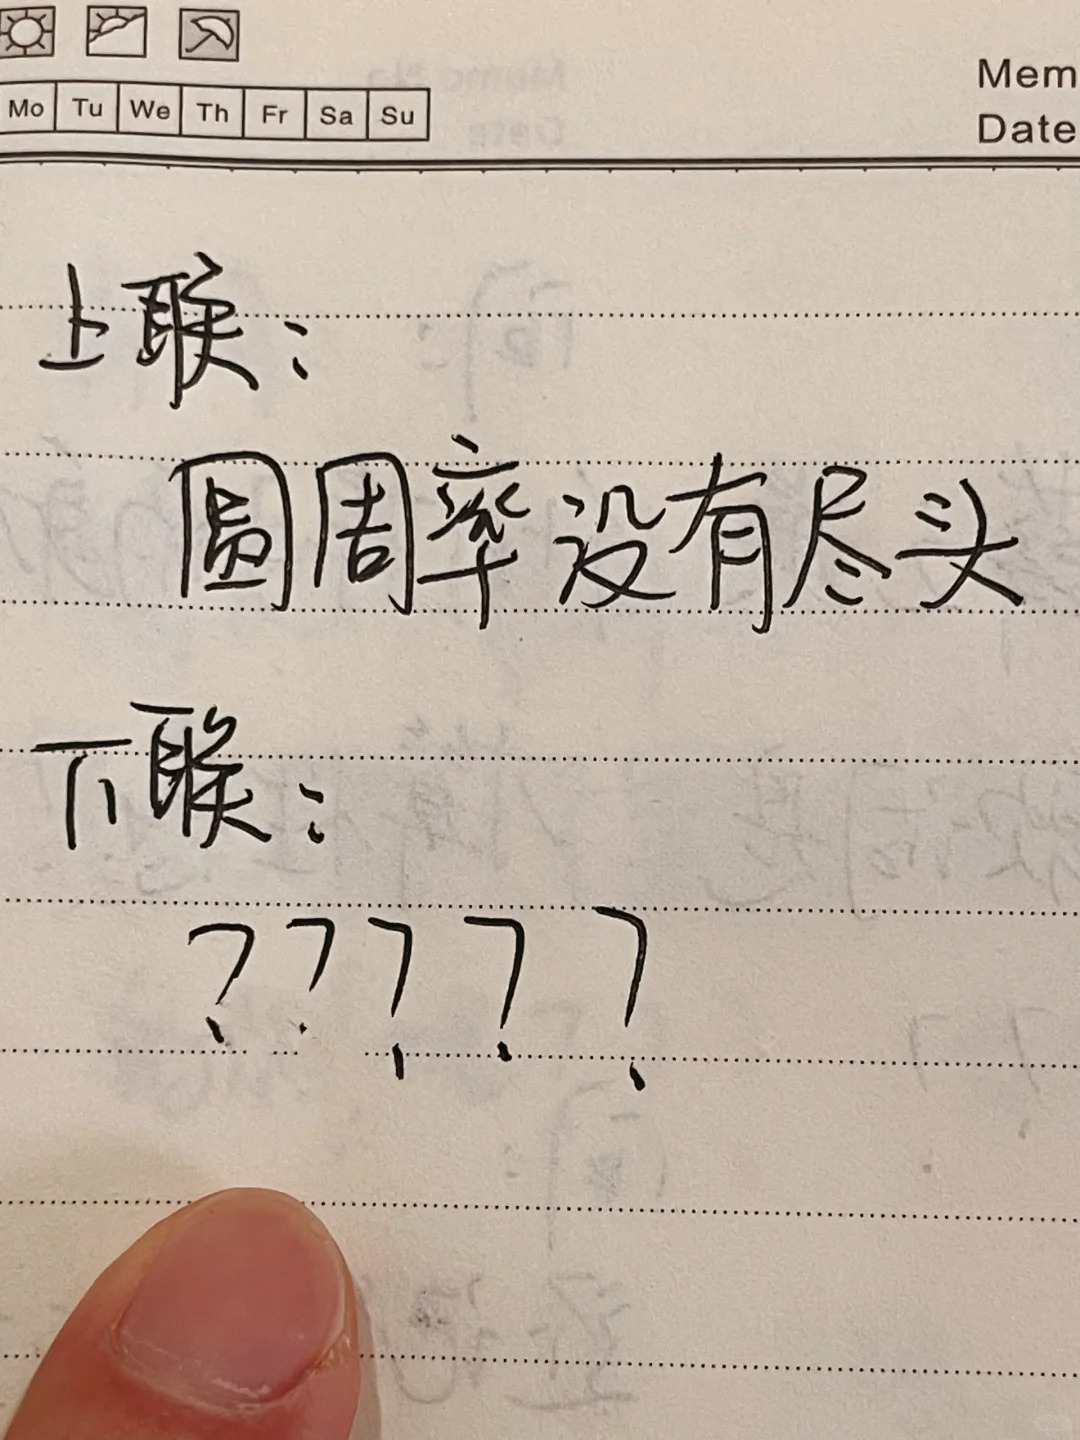 Mo Tu We Th Fr Sa Su
Mem
Date
上联：
圆周率没有尽头
下联：
？？？？？